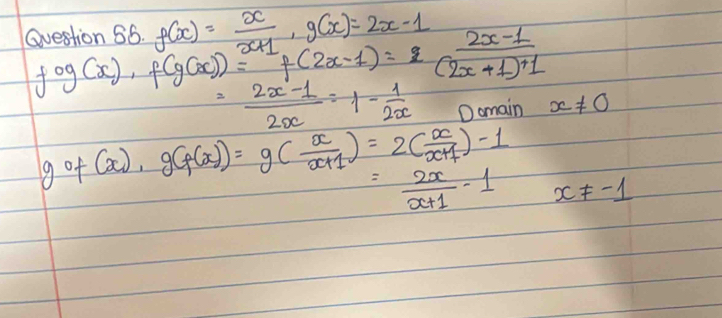 Question 56. f(x) = x/(x+1), g(x) = 2x-1
fog(x), f(g(x)) = f(2x-1) = (2x-1)/((2x+1)+1)
= (2x-1)/(2x) = 1 - 1/(2x) Domain x ≠ 0
gof(x), g(f(x)) = g(x/(x+1)) = 2(x/(x+1)) - 1
= 2x/(x+1) - 1 x ≠ -1